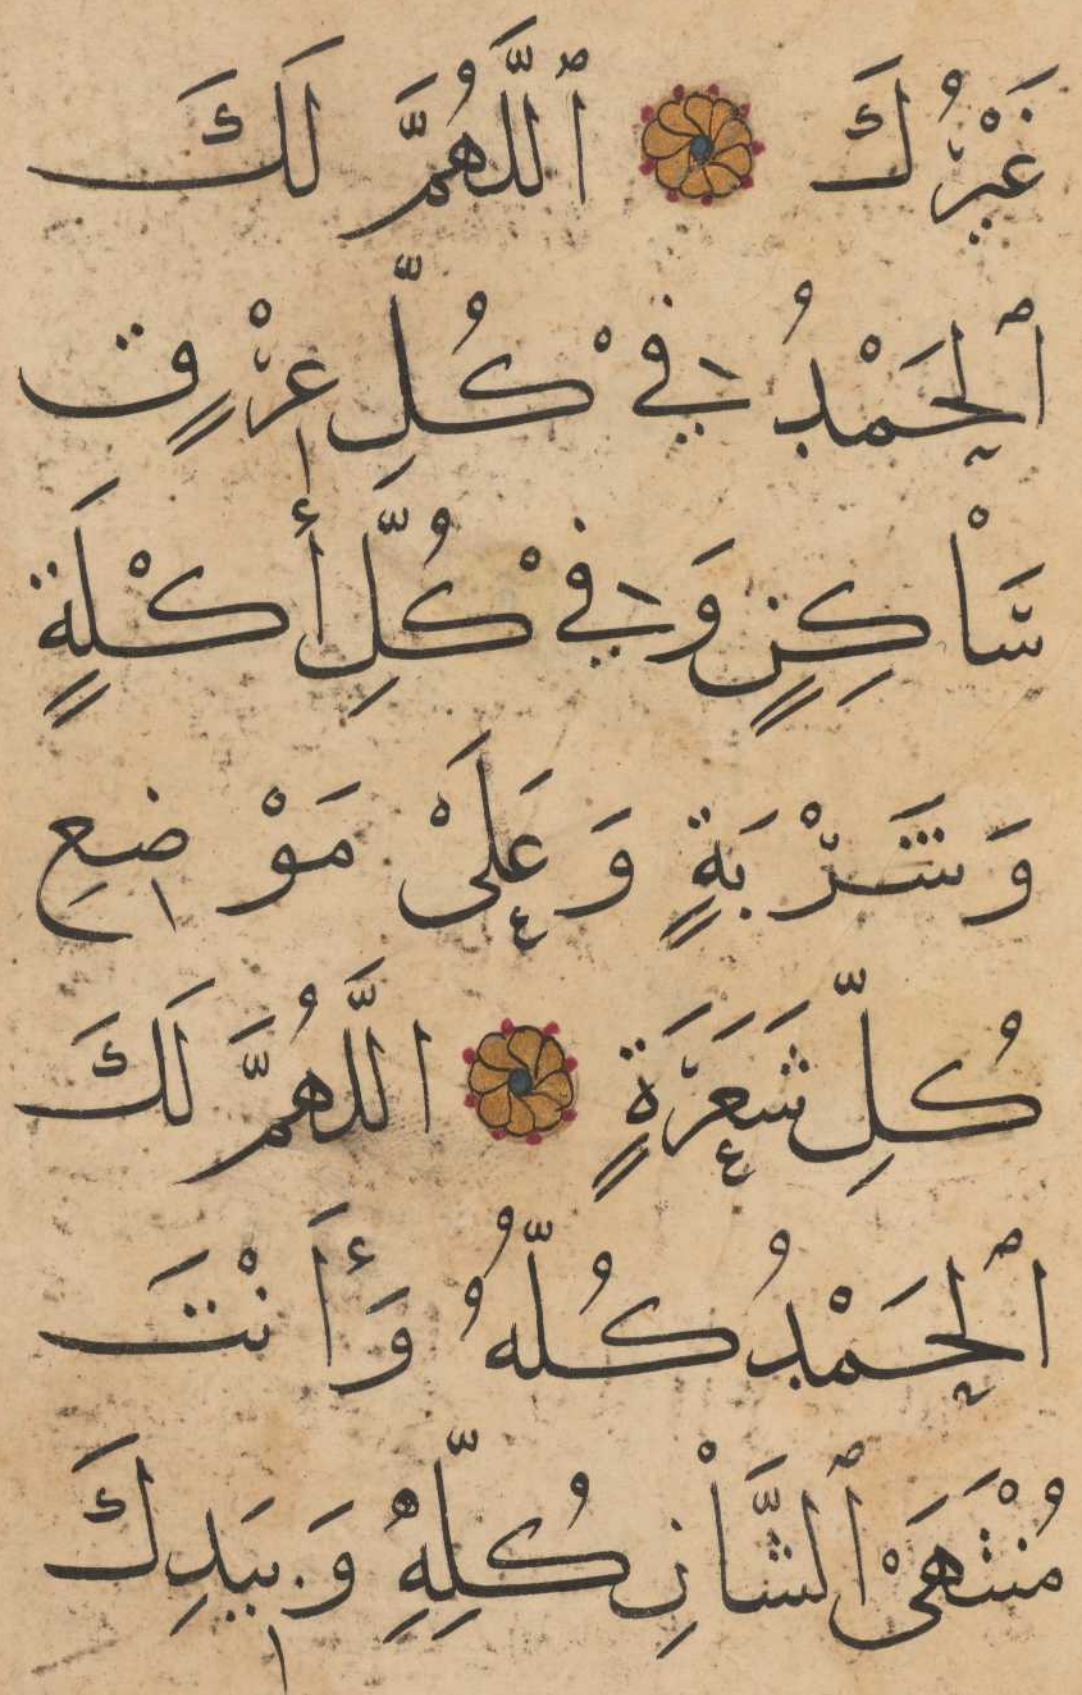 غَيْرُكَ ٱللَّهُمَّ لَكَ
ٱلْحَمْدُ فِيْ كُلِّ عِرْقٍ
سَّاْكِنٍ وَفِيْ كُلِّ أَكْلَةٍ
وَشَرْبَةٍ وَعَلَىْ مَوْضِعِ
كُلِّ شَعَرَةٍ اللَّهُمَّ لَكَ
ٱلْحَمْدُ كُلُّهُ وَأَنْتَ
مُنْتَهَىْ ٱلشَّاْنِ كُلِّهِ وَبِيَدِكَ